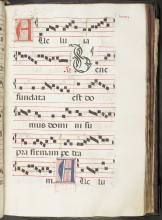 A lle lu
ia Bene
fundata est do
mus domini su
pra firmam pe tra
m. A lle lu